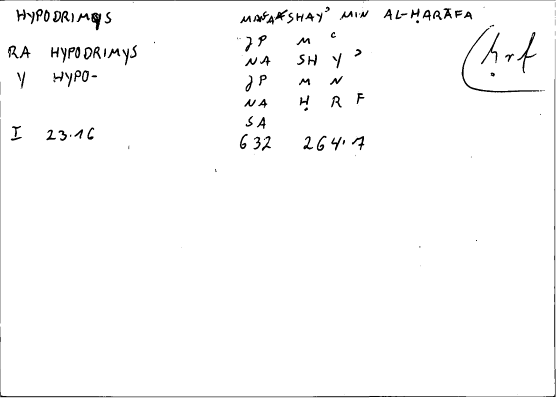 HYPODRIMYS MAʿA SHAYʾ MIN AL-ḤARĀFA
RA HYPODRIMYS JP M ʿ
Y HYPO- NA SH Y ʾ
JP M N
NA Ḥ R F
SA
I 23.16 632 264.7
ḥrf